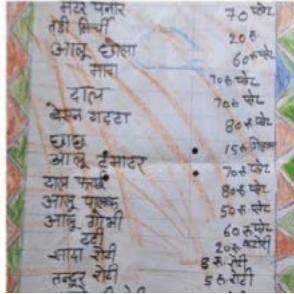 मटर पनीर 70 प्लेट
तडी मिर्ची 20 रु
आलू छोला 60 रु प्लेट
मावा 70 रु प्लेट
दाल 70 रु प्लेट
बेसन गट्टा 80 रु प्लेट
छाछ 15 रु गिलास
आलू टमाटर 70 रु प्लेट
दाल फ्राई 80 रु प्लेट
आलू पालक 50 रु प्लेट
आलू गोभी 60 रु प्लेट
दही 20 रु कटोरी
सादा रोटी 8 रु रोटी
तन्दूर रोटी 5 रु रोटी